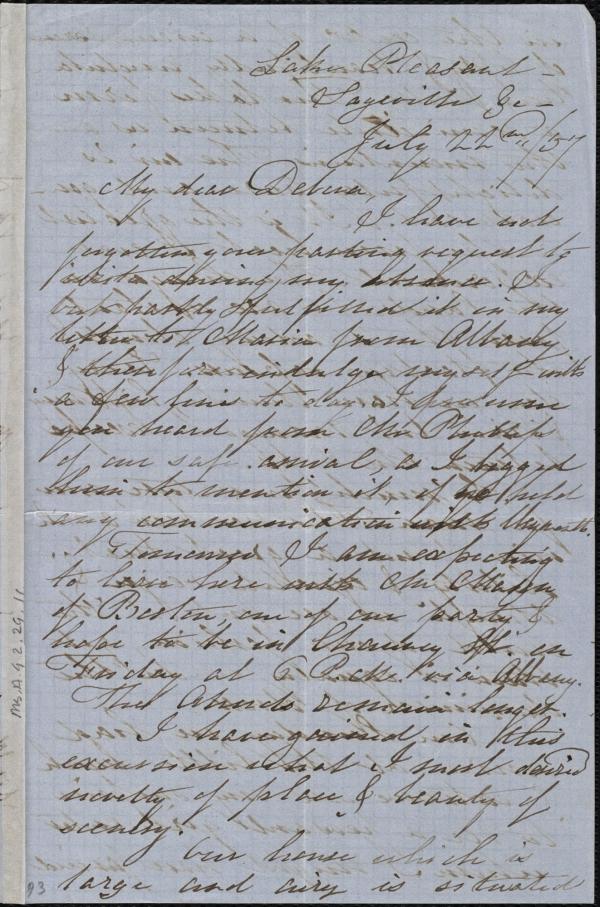 Lake Pleasant -
Sageville &c -
July 22nd/57
My dear Debora,
I have not
forgotten your parting request to
write during my absence. I
but partly fulfilled it in my
letter to Maria from Albany
& therefore indulge myself with
a few lines to day. I presume
you heard from Mr Phillips
of our safe arrival, as I begged
him to mention it, if he held
any communication with Weymouth.
Tomorrow I am expecting
to leave here with Mr
of Boston, one of our party &
hope to be in Chauncy St. on
Friday at 6 P.M. via Albany.
The remain longer.
I have gained in this
excursion what I most desired
novelty of place & beauty of
scenery.
Our house which is
large and airy is situated
Ms.A.9.2.29.11
93